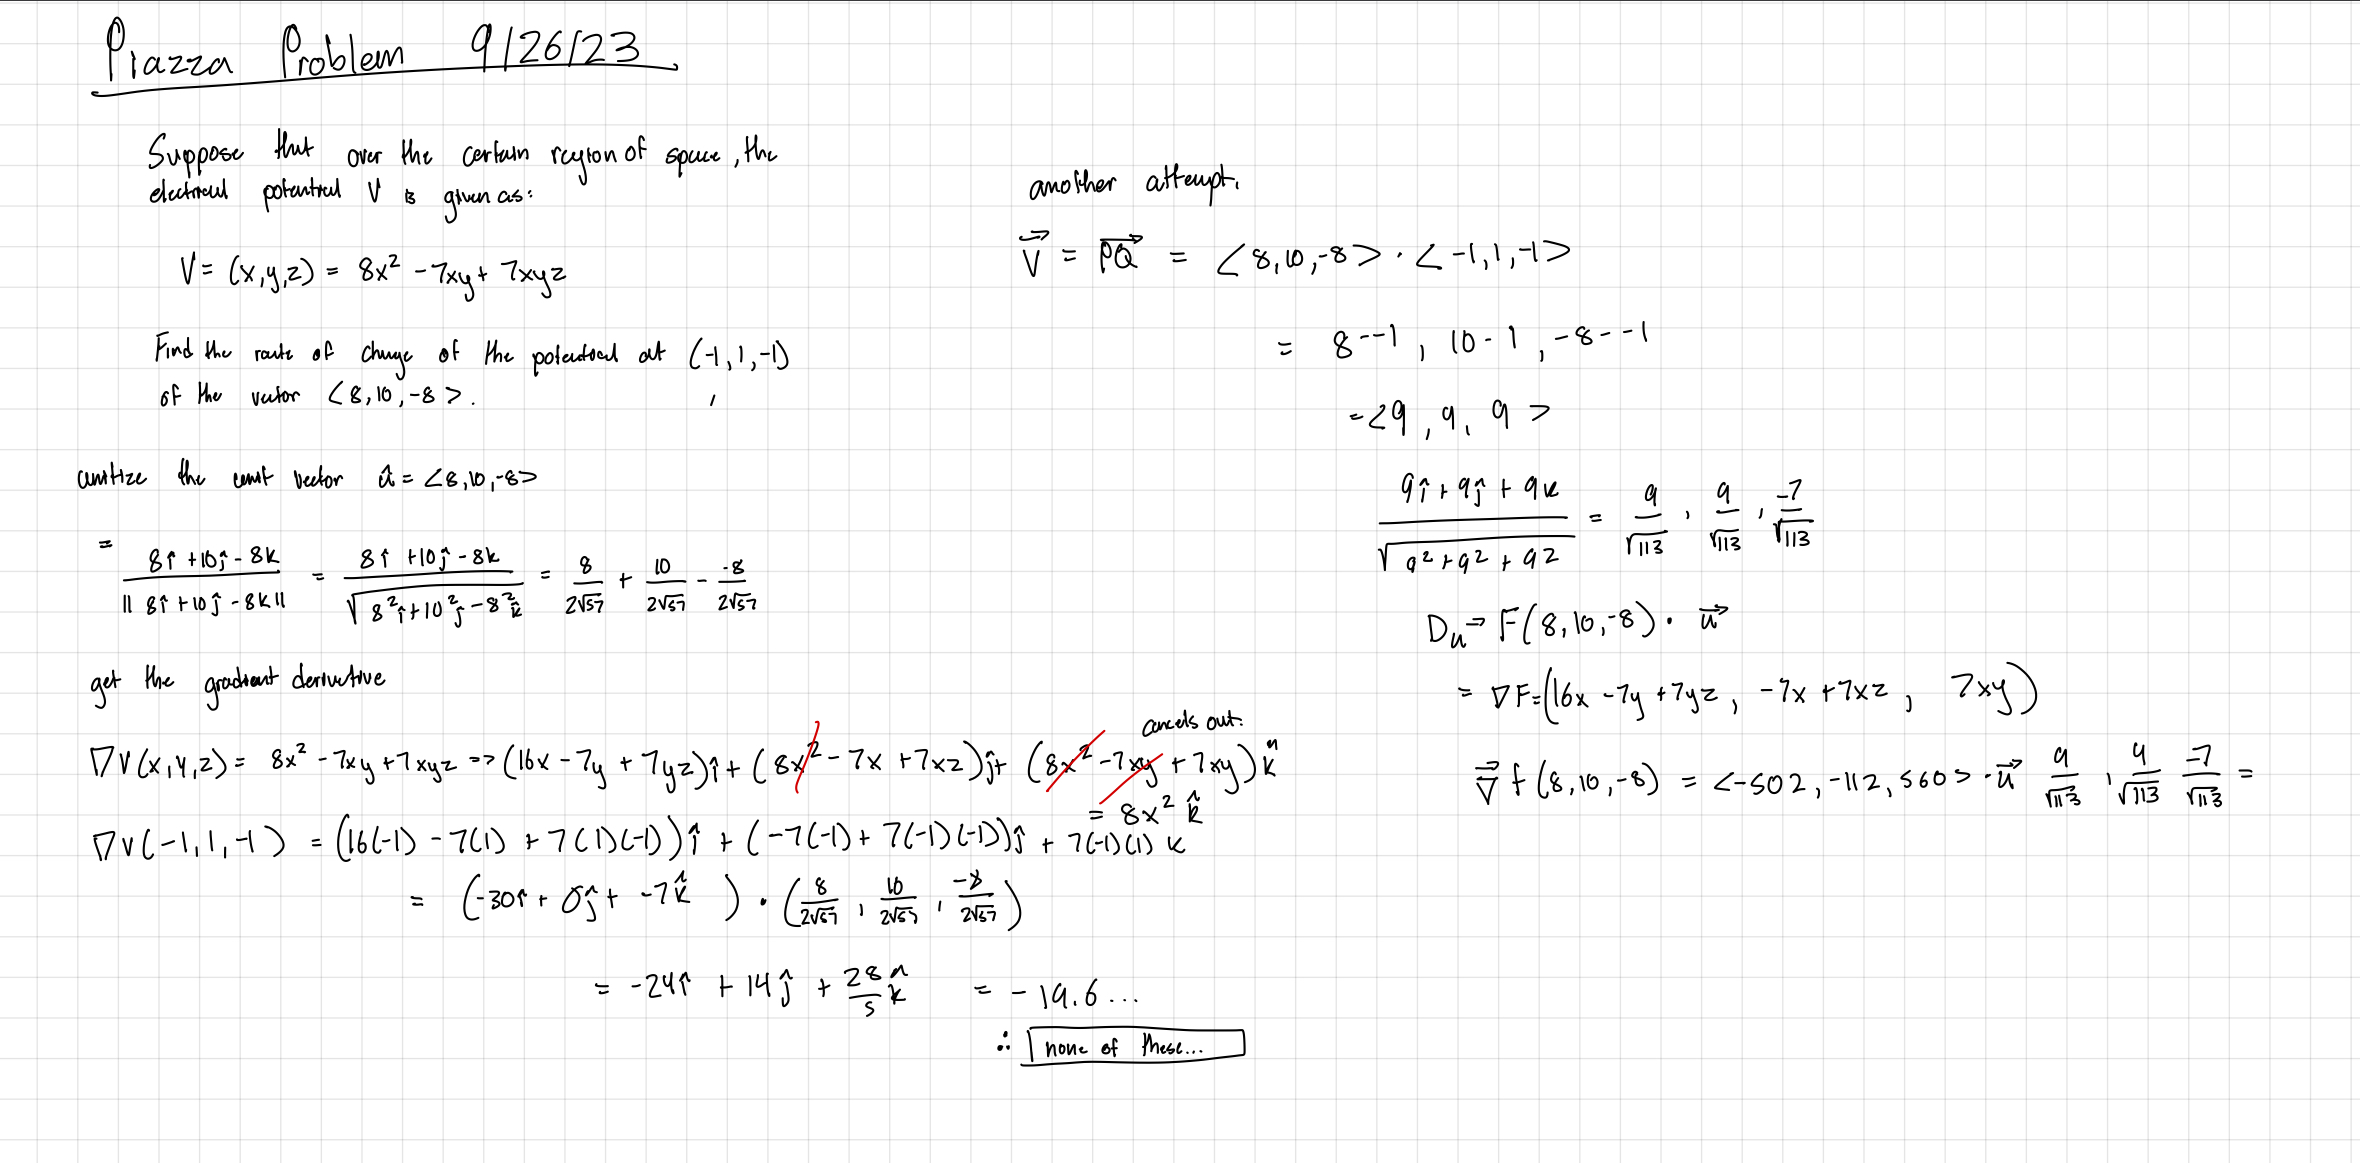 Piazza Problem 9/26/23
Suppose that over the certain region of space, the
electrical potential V is given as:
V = (x,y,z) = 8x² - 7xy + 7xyz
Find the rate of change of the potential at (-1, 1, -1)
of the vector <8, 10, -8>.
unitize the unit vector û = <8, 10, -8>
= (8î + 10ĵ - 8k) / (|| 8î + 10ĵ - 8k ||) = (8î + 10ĵ - 8k) / √(8²î + 10²ĵ - 8²k̂) = 8/(2√57) + 10/(2√57) - -8/(2√57)
get the gradient derivative
∇V(x,y,z) = 8x² - 7xy + 7xyz => (16x - 7y + 7yz)î + (8x² - 7x + 7xz)ĵ + (8x² - 7xy + 7xy)k̂
cancels out.
= 8x² k̂
∇V(-1, 1, -1) = (16(-1) - 7(1) + 7(1)(-1))î + (-7(-1) + 7(-1)(-1))ĵ + 7(-1)(1) k
= (-30î + 0ĵ + -7k̂) · (8/(2√57), 10/(2√57), -8/(2√57))
= -24î + 14ĵ + 28/5 k̂ = -19.6...
∴ none of these...
another attempt.
V⃗ = PQ⃗ = <8, 10, -8> · <-1, 1, -1>
= 8--1, 10-1, -8--1
= <9, 9, 9>
(9î + 9ĵ + 9k) / √(9² + 9² + 92) = 9/√113, 9/√113, -7/√113
Du⃗ F(8, 10, -8) · u⃗
= ∇F = (16x - 7y + 7yz, -7x + 7xz, 7xy)
∇⃗ f(8, 10, -8) = <-502, -112, 560> · u⃗ 9/√113, 9/√113 -7/√113 =